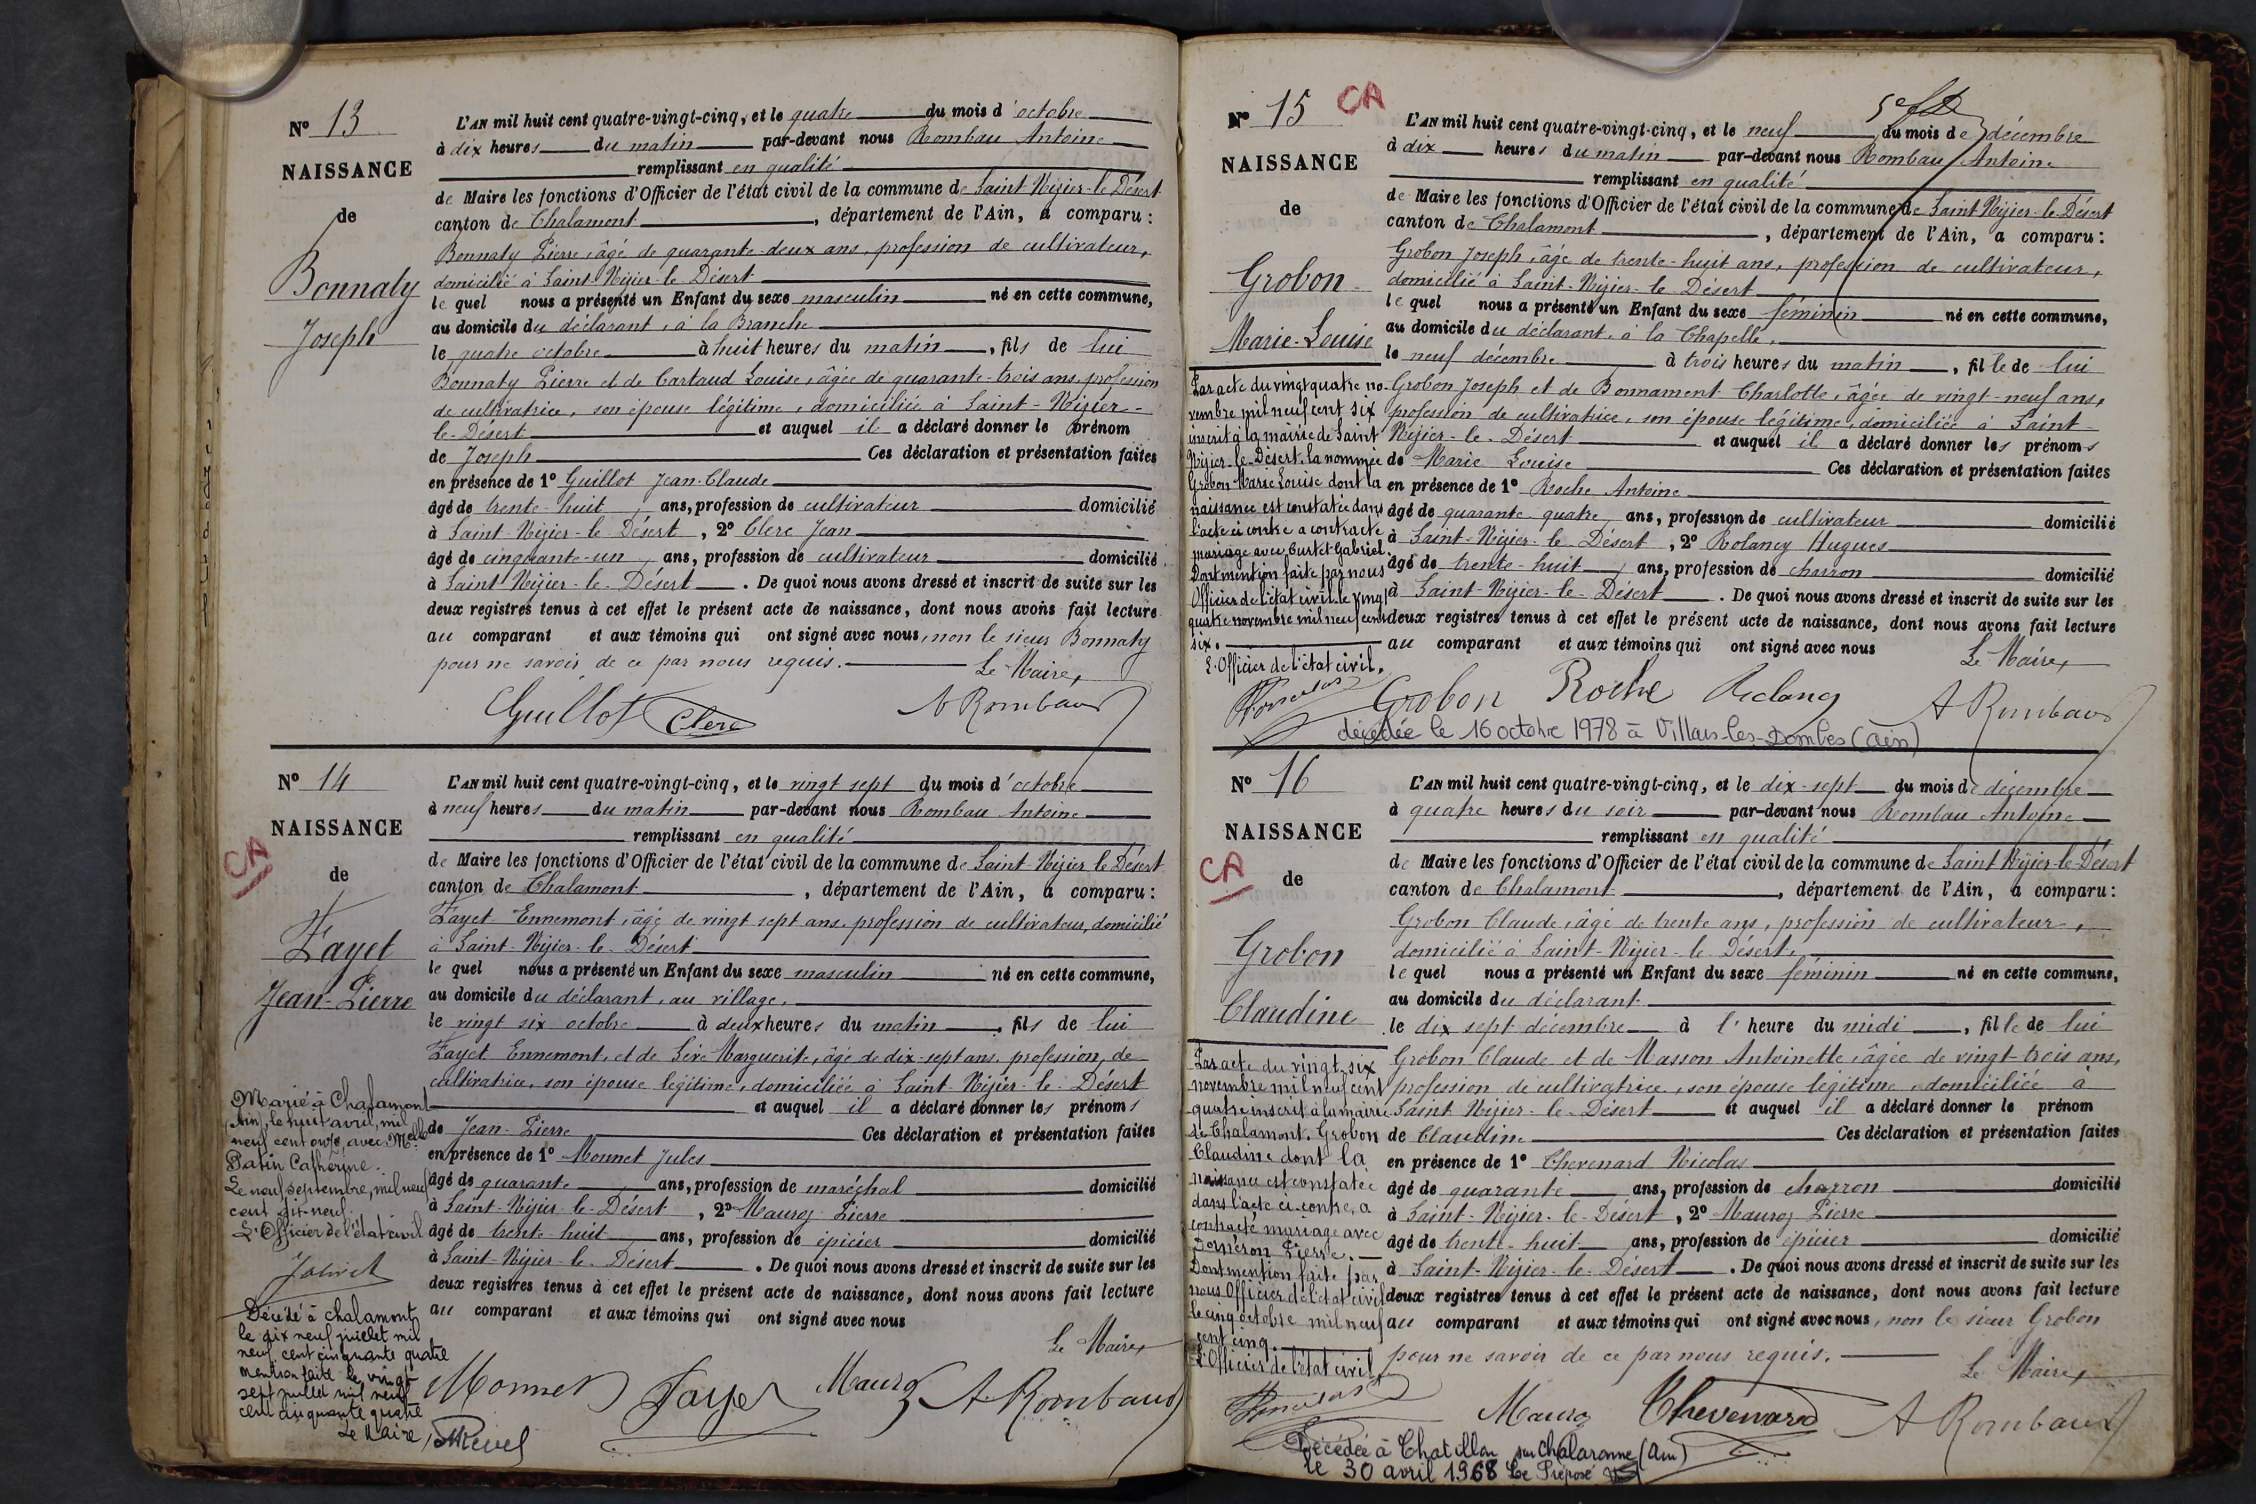 Nº 13
NAISSANCE
de
Bonnaty
Joseph
L'AN mil huit cent quatre-vingt-cinq, et le quatre du mois d'octobre
à dix heures du matin par-devant nous Rombau Antoine
remplissant en qualité
de Maire les fonctions d'Officier de l'état civil de la commune de Saint-Nizier-le-Désert
canton de Chalamont, département de l'Ain, a comparu :
Bonnaty Pierre, âgé de quarante-deux ans, profession de cultivateur,
domicilié à Saint-Nizier-le-Désert
lequel nous a présenté un Enfant du sexe masculin né en cette commune,
au domicile du déclarant, à la Branche
le quatre octobre à huit heures du matin, fils de lui
Bonnaty Pierre et de Cartaud Louise, âgée de quarante-trois ans, profession
de cultivatrice, son épouse légitime, domiciliée à Saint-Nizier-
le-Désert et auquel il a déclaré donner le prénom
de Joseph Ces déclaration et présentation faites
en présence de 1º Guillot Jean-Claude
âgé de trente-huit ans, profession de cultivateur domicilié
à Saint-Nizier-le-Désert, 2º Clerc Jean
âgé de cinquante-un ans, profession de cultivateur domicilié
à Saint-Nizier-le-Désert. De quoi nous avons dressé et inscrit de suite sur les
deux registres tenus à cet effet le présent acte de naissance, dont nous avons fait lecture
au comparant et aux témoins qui ont signé avec nous, non le sieur Bonnaty
pour ne savoir de ce par nous requis. Le Maire,
Guillot Clerc A Rombau
Nº 14
NAISSANCE
CA
de
Fayet
Jean-Pierre
L'AN mil huit cent quatre-vingt-cinq, et le vingt sept du mois d'octobre
à neuf heures du matin par-devant nous Rombau Antoine
remplissant en qualité
de Maire les fonctions d'Officier de l'état civil de la commune de Saint-Nizier-le-Désert
canton de Chalamont, département de l'Ain, a comparu :
Fayet Ennemont, âgé de vingt sept ans, profession de cultivateur, domicilié
à Saint-Nizier-le-Désert
lequel nous a présenté un Enfant du sexe masculin né en cette commune,
au domicile du déclarant, au village,
le vingt six octobre à deux heures du matin, fils de lui
Fayet Ennemont, et de Marguerite, âgée de dix-sept ans, profession de
cultivatrice, son épouse légitime, domiciliée à Saint-Nizier-le-Désert
et auquel il a déclaré donner les prénoms
de Jean-Pierre Ces déclaration et présentation faites
en présence de 1º Monnet Jules
âgé de quarante ans, profession de maréchal domicilié
à Saint-Nizier-le-Désert, 2º Mauroz Pierre
âgé de trente-huit ans, profession de épicier domicilié
à Saint-Nizier-le-Désert. De quoi nous avons dressé et inscrit de suite sur les
deux registres tenus à cet effet le présent acte de naissance, dont nous avons fait lecture
au comparant et aux témoins qui ont signé avec nous
Le Maire,
Monnet Fayet Mauroz A. Rombaud
Marié à Chalamont
(Ain), le huit avril, mil
neuf cent onze, avec Melle
Patin Catherine.
Le neuf septembre, mil neuf
cent dix-neuf.
L'Officier de l'état civil
Décédé à Chalamont
le dix neuf juillet mil
neuf cent cinquante quatre
mention faite le vingt
sept juillet mil neuf
cent cinquante quatre
Le Maire,
Nº 15 CA
NAISSANCE
de
Grobon
Marie-Louise
L'AN mil huit cent quatre-vingt-cinq, et le neuf du mois de décembre
à dix heures du matin par-devant nous Rombau Antoine
remplissant en qualité
de Maire les fonctions d'Officier de l'état civil de la commune de Saint-Nizier-le-Désert
canton de Chalamont, département de l'Ain, a comparu :
Grobon Joseph, âgé de trente-huit ans, profession de cultivateur,
domicilié à Saint-Nizier-le-Désert
lequel nous a présenté un Enfant du sexe féminin né en cette commune,
au domicile du déclarant, à la Chapelle,
le neuf décembre à trois heures du matin, fille de lui
Grobon Joseph et de Bonnament Charlotte, âgée de vingt-neuf ans,
profession de cultivatrice, son épouse légitime, domiciliée à Saint-
Nizier-le-Désert et auquel il a déclaré donner les prénoms
de Marie Louise Ces déclaration et présentation faites
en présence de 1º Roche Antoine
âgé de quarante quatre ans, profession de cultivateur domicilié
à Saint-Nizier-le-Désert, 2º Rolancy Hugues
âgé de trente-huit ans, profession de charron domicilié
à Saint-Nizier-le-Désert. De quoi nous avons dressé et inscrit de suite sur les
deux registres tenus à cet effet le présent acte de naissance, dont nous avons fait lecture
au comparant et aux témoins qui ont signé avec nous
Le Maire,
Grobon Roche Rolancy A Rombau
décédée le 16 octobre 1978 à Villars-les-Dombes (Ain)
Par acte du vingt quatre no-
vembre mil neuf cent six
inscrit à la mairie de Saint
Nizier-le-Désert, la nommée
Grobon Marie Louise dont la
naissance est constatée dans
l'acte ci contre a contracté
mariage avec Curtet Gabriel.
Dont mention faite par nous
Officier de l'état civil le vingt
quatre novembre mil neuf cent
six.
L'Officier de l'état civil,
Nº 16
NAISSANCE
CA
de
Grobon
Claudine
L'AN mil huit cent quatre-vingt-cinq, et le dix-sept du mois de décembre
à quatre heures du soir par-devant nous Rombau Antoine
remplissant en qualité
de Maire les fonctions d'Officier de l'état civil de la commune de Saint-Nizier-le-Désert
canton de Chalamont, département de l'Ain, a comparu :
Grobon Claude, âgé de trente ans, profession de cultivateur,
domicilié à Saint-Nizier-le-Désert,
lequel nous a présenté un Enfant du sexe féminin né en cette commune,
au domicile du déclarant
le dix sept décembre à l'heure du midi, fille de lui
Grobon Claude et de Masson Antoinette, âgée de vingt-trois ans,
profession de cultivatrice, son épouse légitime, domiciliée à
Saint-Nizier-le-Désert et auquel il a déclaré donner le prénom
de Claudine Ces déclaration et présentation faites
en présence de 1º Chevenard Nicolas
âgé de quarante ans, profession de charron domicilié
à Saint-Nizier-le-Désert, 2º Mauroz Pierre
âgé de trente-huit ans, profession de épicier domicilié
à Saint-Nizier-le-Désert. De quoi nous avons dressé et inscrit de suite sur les
deux registres tenus à cet effet le présent acte de naissance, dont nous avons fait lecture
au comparant et aux témoins qui ont signé avec nous, non le sieur Grobon
pour ne savoir de ce par nous requis.
Le Maire,
Mauroz Chevenard A Rombaud
Par acte du vingt-six
novembre mil neuf cent
quatre inscrit à la mairie
de Chalamont, Grobon
Claudine dont la
naissance est constatée
dans l'acte ci-contre, a
contracté mariage avec
Pierre.
Dont mention faite par
nous Officier de l'état civil
le cinq octobre mil neuf
cent cinq.
L'Officier de l'état civil
Décédée à Chatillon sur Chalaronne (Ain)
le 30 avril 1968 Le Préposé